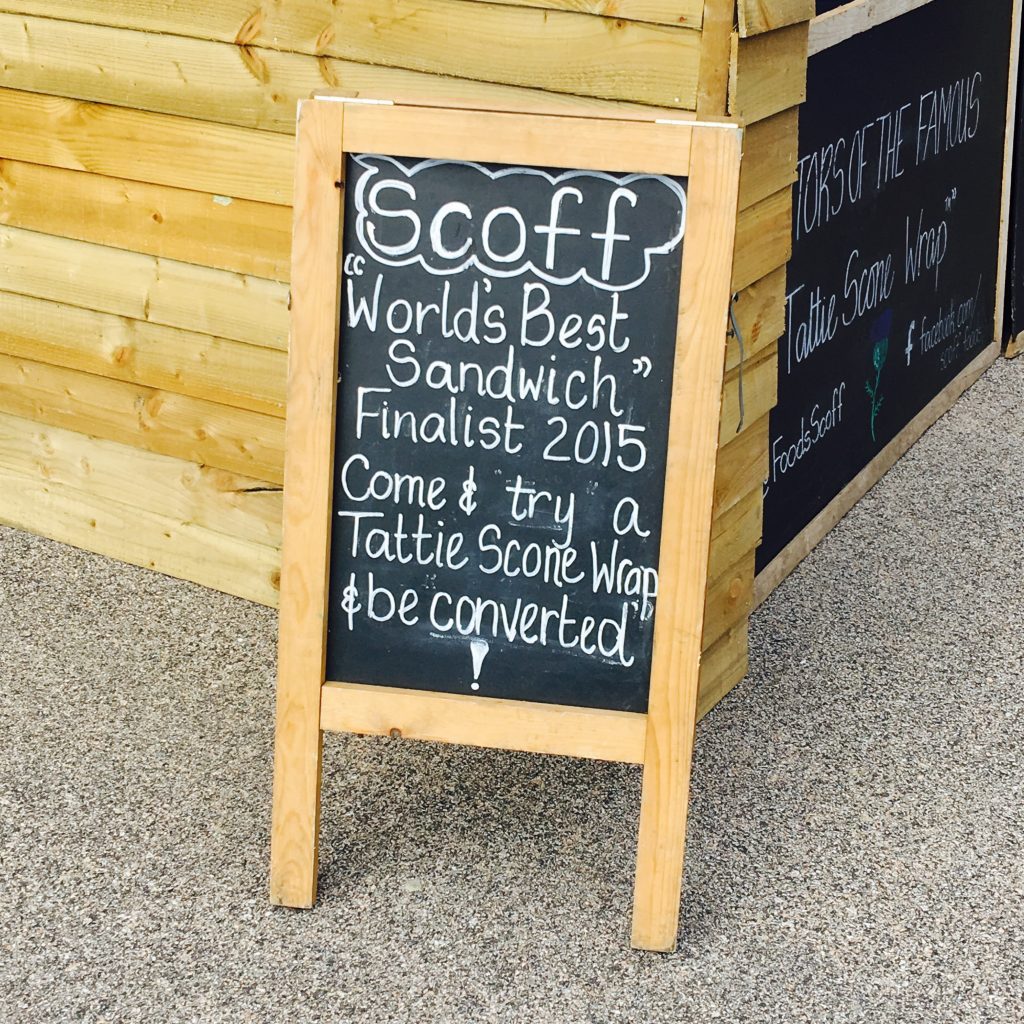 Scoff
"World's Best
Sandwich"
Finalist 2015
Come & try a
Tattie Scone Wrap
& be converted"
!
TORS OF THE FAMOUS
Tattie Scone Wrap"
f facebook.com/
@FoodsScoff